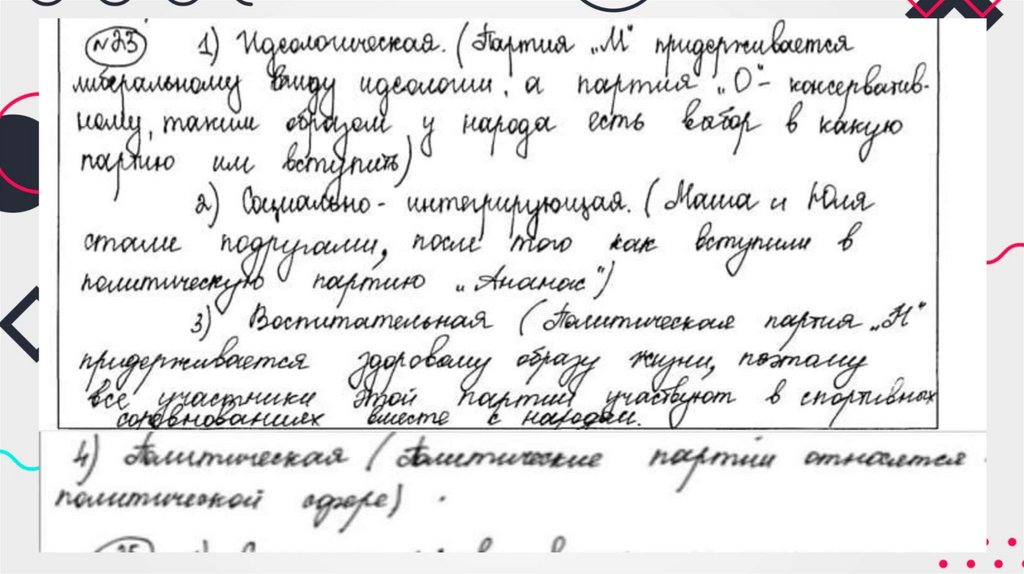 №23 1) Идеологическая. (Партия „М" придерживается
либеральному виду идеологии, а партия „О" - консерватив-
ному, таким образом у народа есть выбор в какую
партию им вступить)
2) Социально - интегрирующая. (Маша и Юля
стали подругами, после того как вступили в
политическую партию „Ананас")
3) Воспитательная (Политическая партия „Н"
придерживается здоровому образу жизни, поэтому
все участники этой партии участвуют в спортивных
соревнованиях вместе с народом.
4) Политическая (Политические партии относятся
политической сфере).